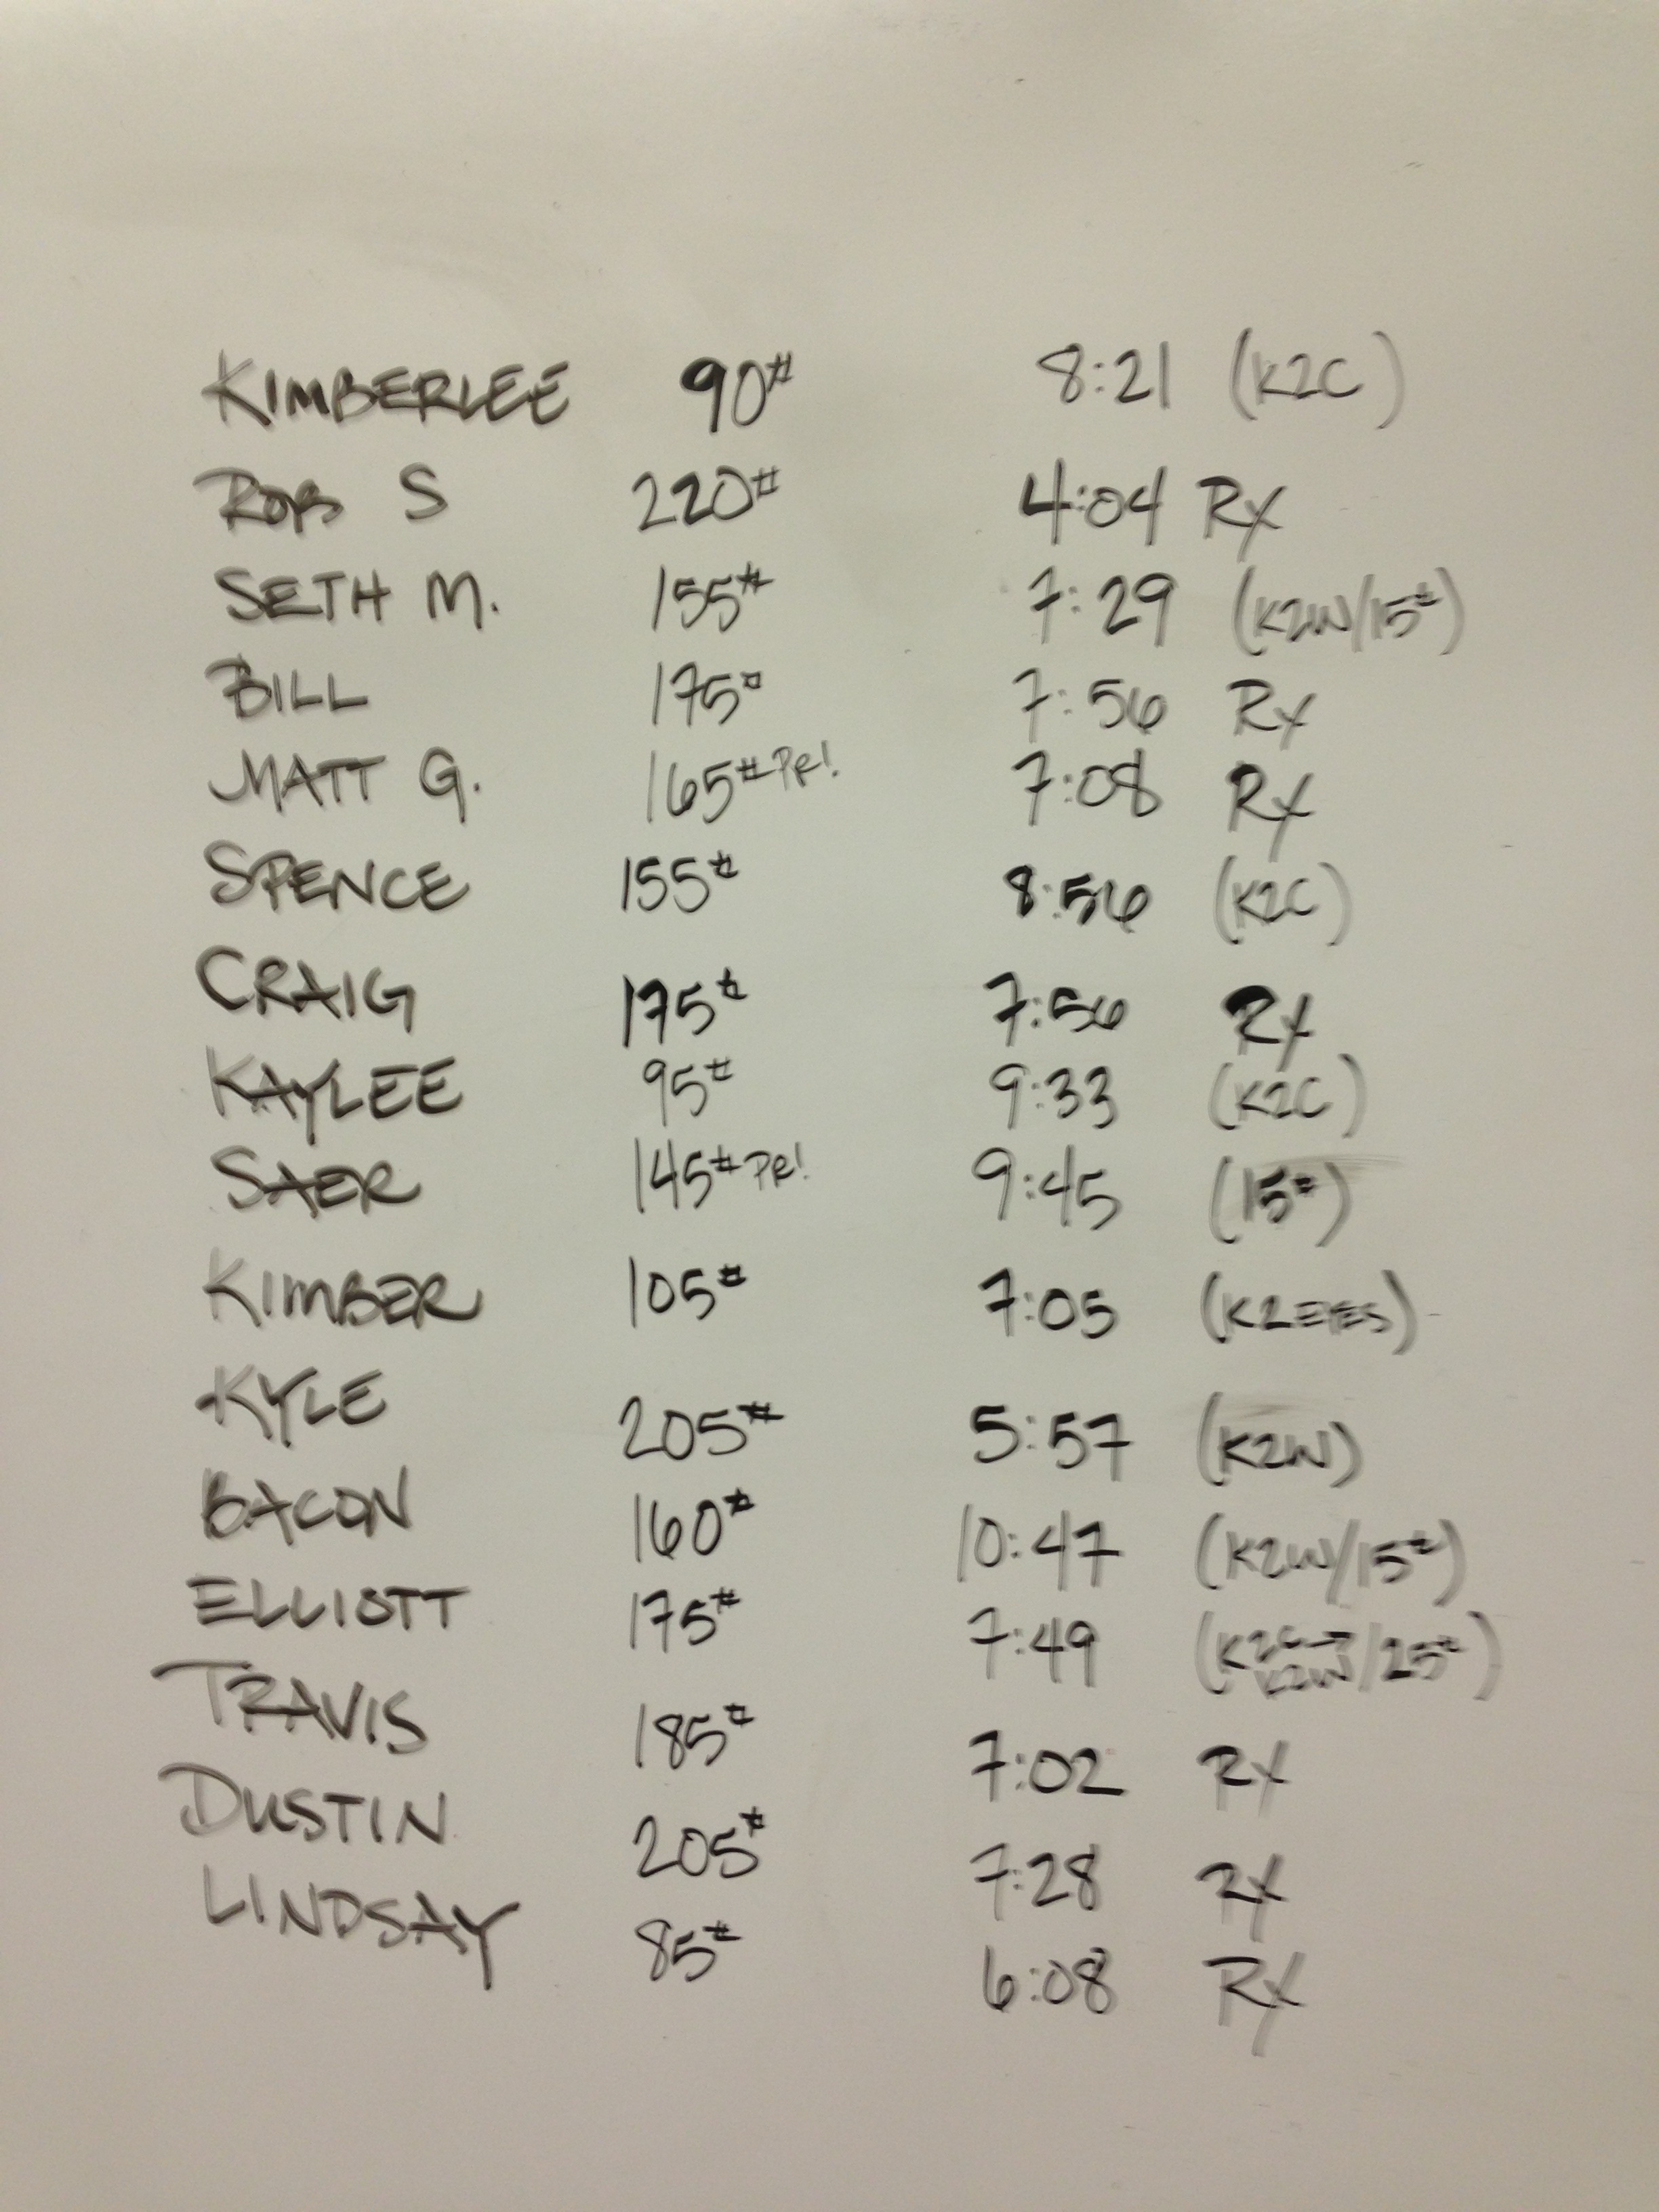 KIMBERLEE 90# 8:21 (K2C)
ROB S 220# 4:04 Rx
SETH M. 155# 7:29 (K2W/15#)
BILL 175# 7:56 Rx
MATT G. 165# PR! 7:08 Rx
SPENCE 155# 8:56 (K2C)
CRAIG 175# 7:56 Rx
KAYLEE 95# 9:33 (K2C)
SAER 145# PR! 9:45 (15#)
KIMBER 105# 7:05 (K2EYES)
KYLE 205# 5:57 (K2W)
BACON 160# 10:47 (K2W/15#)
ELLIOTT 175# 7:49 (K2C→K2W/25#)
TRAVIS 185# 7:02 Rx
DUSTIN 205# 7:28 Rx
LINDSAY 85# 6:08 Rx